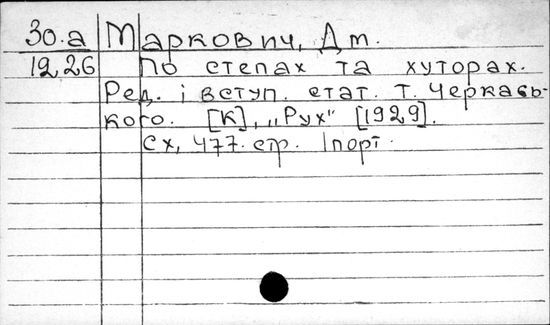 30.а Маркович, Дм.
1926 По степах та хуторах.
Ред. і вступ. стат. Т. Черкась-
кого. [К], „Рух" [1929].
Сх, 477. стр. 1 порт.